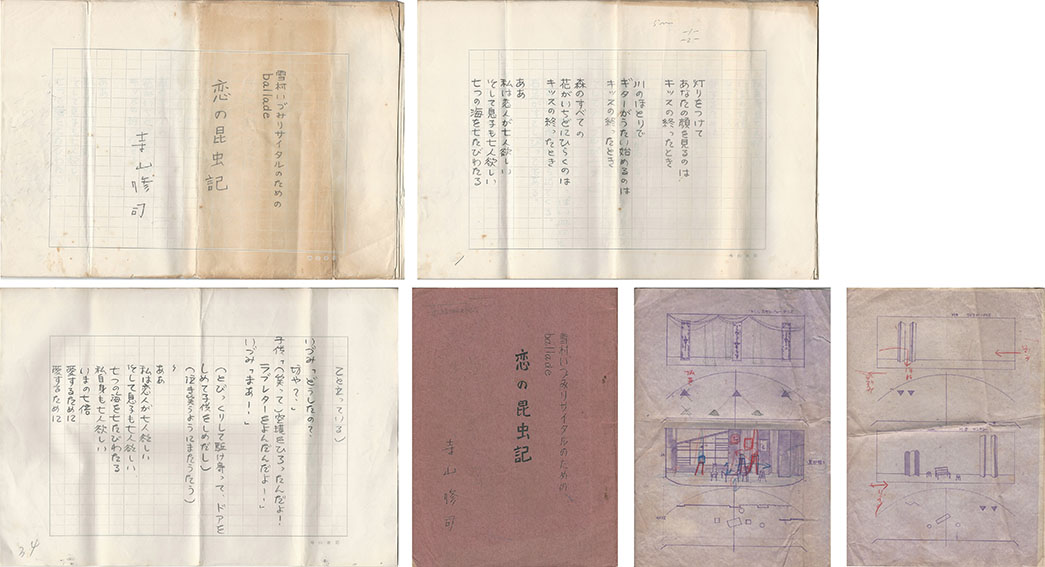 雪村いづみリサイタルのための
ballade
恋の昆虫記
寺山修司
-1-
-2-
灯りをつけて
あなたの顔を見るのは
キッスの終ったとき
川のほとりで
ギターがうたい始めるのは
キッスの終ったとき
森のすべての
花がいちどにひらくのは
キッスの終ったとき
ああ
私は恋人が七人欲しい
そして息子も七人欲しい
七つの海を七たびわたる
いづみ「どうしたの?
坊や?」
子供「(笑って)空壜をひろったんだよ!
ラブレターをよんだんだよ!」
いづみ「まあ!」
(とびっくりして駈け寄って、ドアを
しめて子供をしめだし)
(泣き笑うようにまたうたう)
ああ
私は恋人が七人欲しい
そして息子も七人欲しい
七つの海を七たびわたる
私自身も七人欲しい
いまの七倍
愛するために
愛するために
34
雪村いづみリサイタルのための
ballade
恋の昆虫記
寺山修司